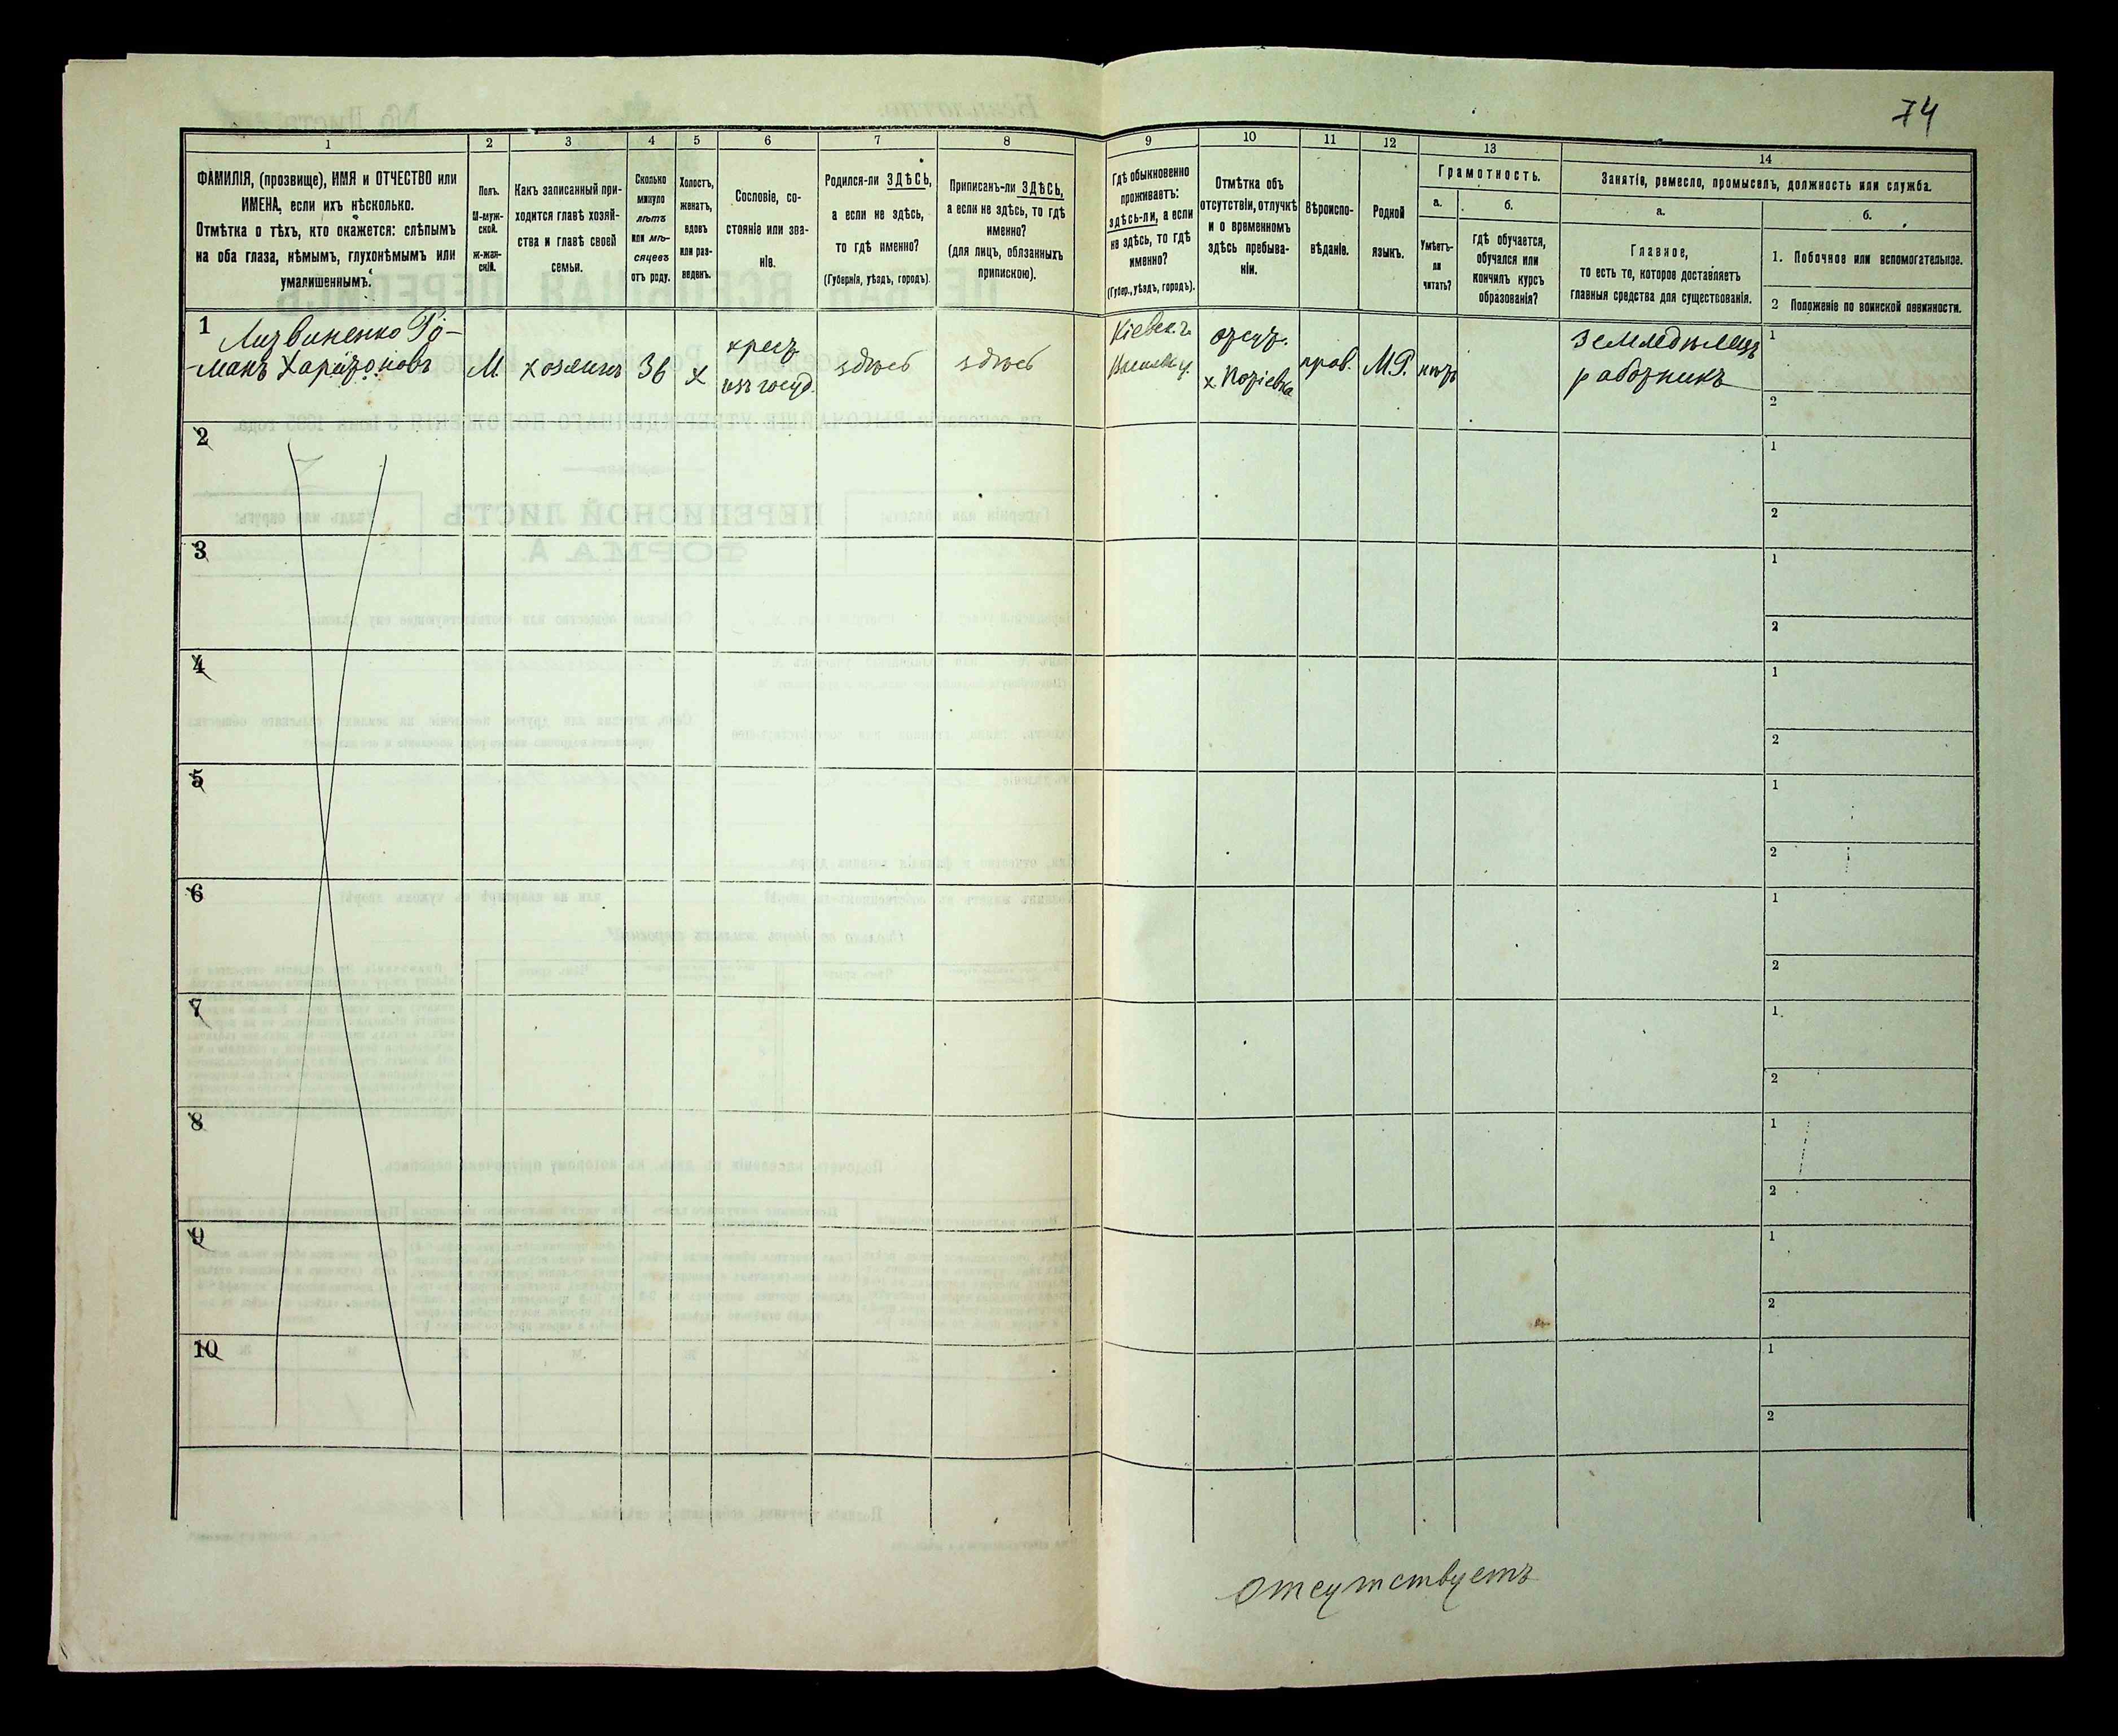 74
1
2
3
4
5
6
7
8
9
10
11
12
13
14
ФАМИЛІЯ, (прозвище), ИМЯ и ОТЧЕСТВО или
ИМЕНА, если ихъ нѣсколько.
Отмѣтка о тѣхъ, кто окажется: слѣпымъ
на оба глаза, нѣмымъ, глухонѣмымъ или
умалишеннымъ.
Полъ.
М-муж-
ской.
Ж-жен-
скій.
Какъ записанный при-
ходится главѣ хозяй-
ства и главѣ своей
семьи.
Сколько
минуло
лѣтъ
или мѣ-
сяцевъ
отъ роду.
Холостъ,
женатъ,
вдовъ
или раз-
веденъ.
Сословіе, со-
стояніе или зва-
ніе.
Родился-ли ЗДѢСЬ,
а если не здѣсь,
то гдѣ именно?
(Губернія, уѣздъ, городъ).
Приписанъ-ли ЗДѢСЬ,
а если не здѣсь, то гдѣ
именно?
(для лицъ, обязанныхъ
припискою).
Гдѣ обыкновенно
проживаетъ:
здѣсь-ли, а если
не здѣсь, то гдѣ
именно?
(Губер., уѣздъ, городъ).
Отмѣтка объ
отсутствіи, отлучкѣ
и о временномъ
здѣсь пребыва-
ніи.
Вѣроиспо-
вѣданіе.
Родной
языкъ.
Грамотность.
а.
Умѣетъ-
ли
читать?
б.
гдѣ обучается,
обучался или
кончилъ курсъ
образованія?
Занятіе, ремесло, промыселъ, должность или служба.
а.
Главное,
то есть то, которое доставляетъ
главныя средства для существованія.
б.
1. Побочное или вспомогательное.
2 Положеніе по воинской повинности.
1
Литвиненко Ро-
манъ Харитоновъ
М.
хозяинъ
36
х
крест.
изъ госуд.
здѣсь
здѣсь
Кіевск. г.
отсут.
прав.
М.Р.
нѣтъ
земледѣлецъ
работникъ
1
2
2
1
2
3
1
2
4
1
2
5
1
2
6
1
2
7
1
2
8
1
2
9
1
2
10
1
2
отсутствуетъ